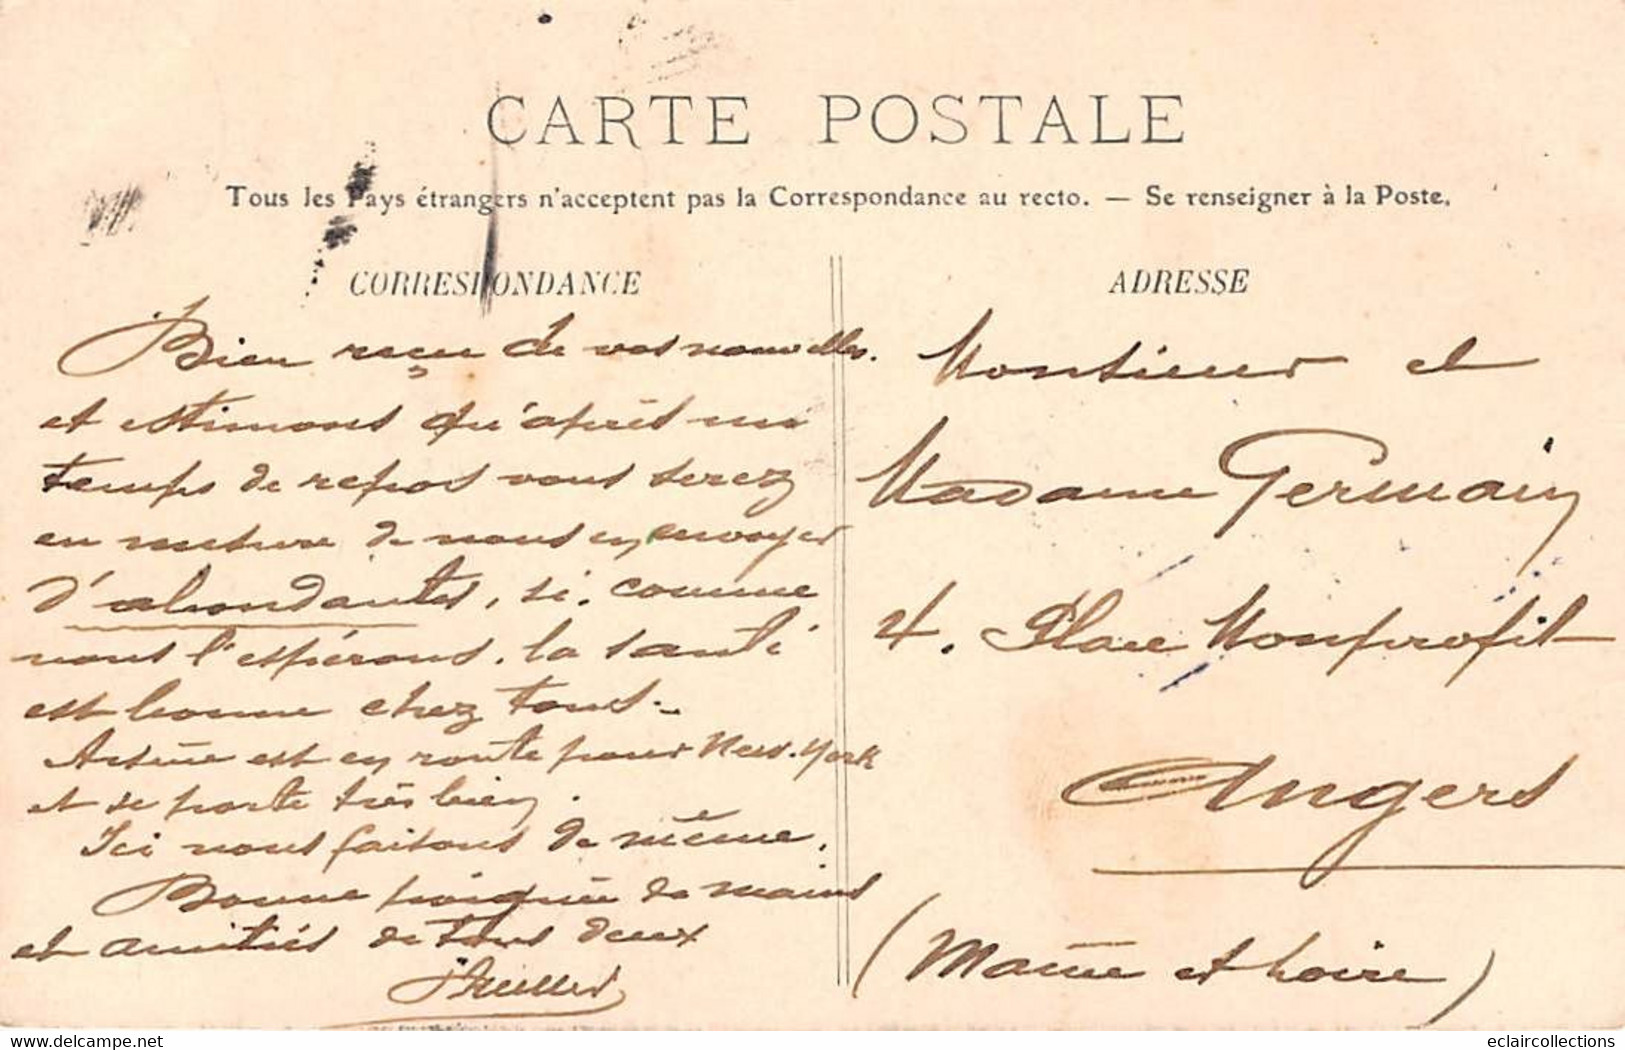 CARTE POSTALE
Tous les Pays étrangers n'acceptent pas la Correspondance au recto. — Se renseigner à la Poste.
CORRESPONDANCE
Bien reçu de vos nouvelles.
et estimons qu'après un
temps de repos vous serez
en mesure de nous en envoyer
d'abondantes, si, comme
nous l'espérons, la santé
est bonne chez tous.
est en route pour New-York
et se porte très bien.
Ici nous faisons de même.
Bonne poignée de mains
et amitiés de tous deux
ADRESSE
Monsieur et
Madame Germain
4. Place Monprofit
Angers
(Maine et Loire)
delcampe.net
eclaircollections